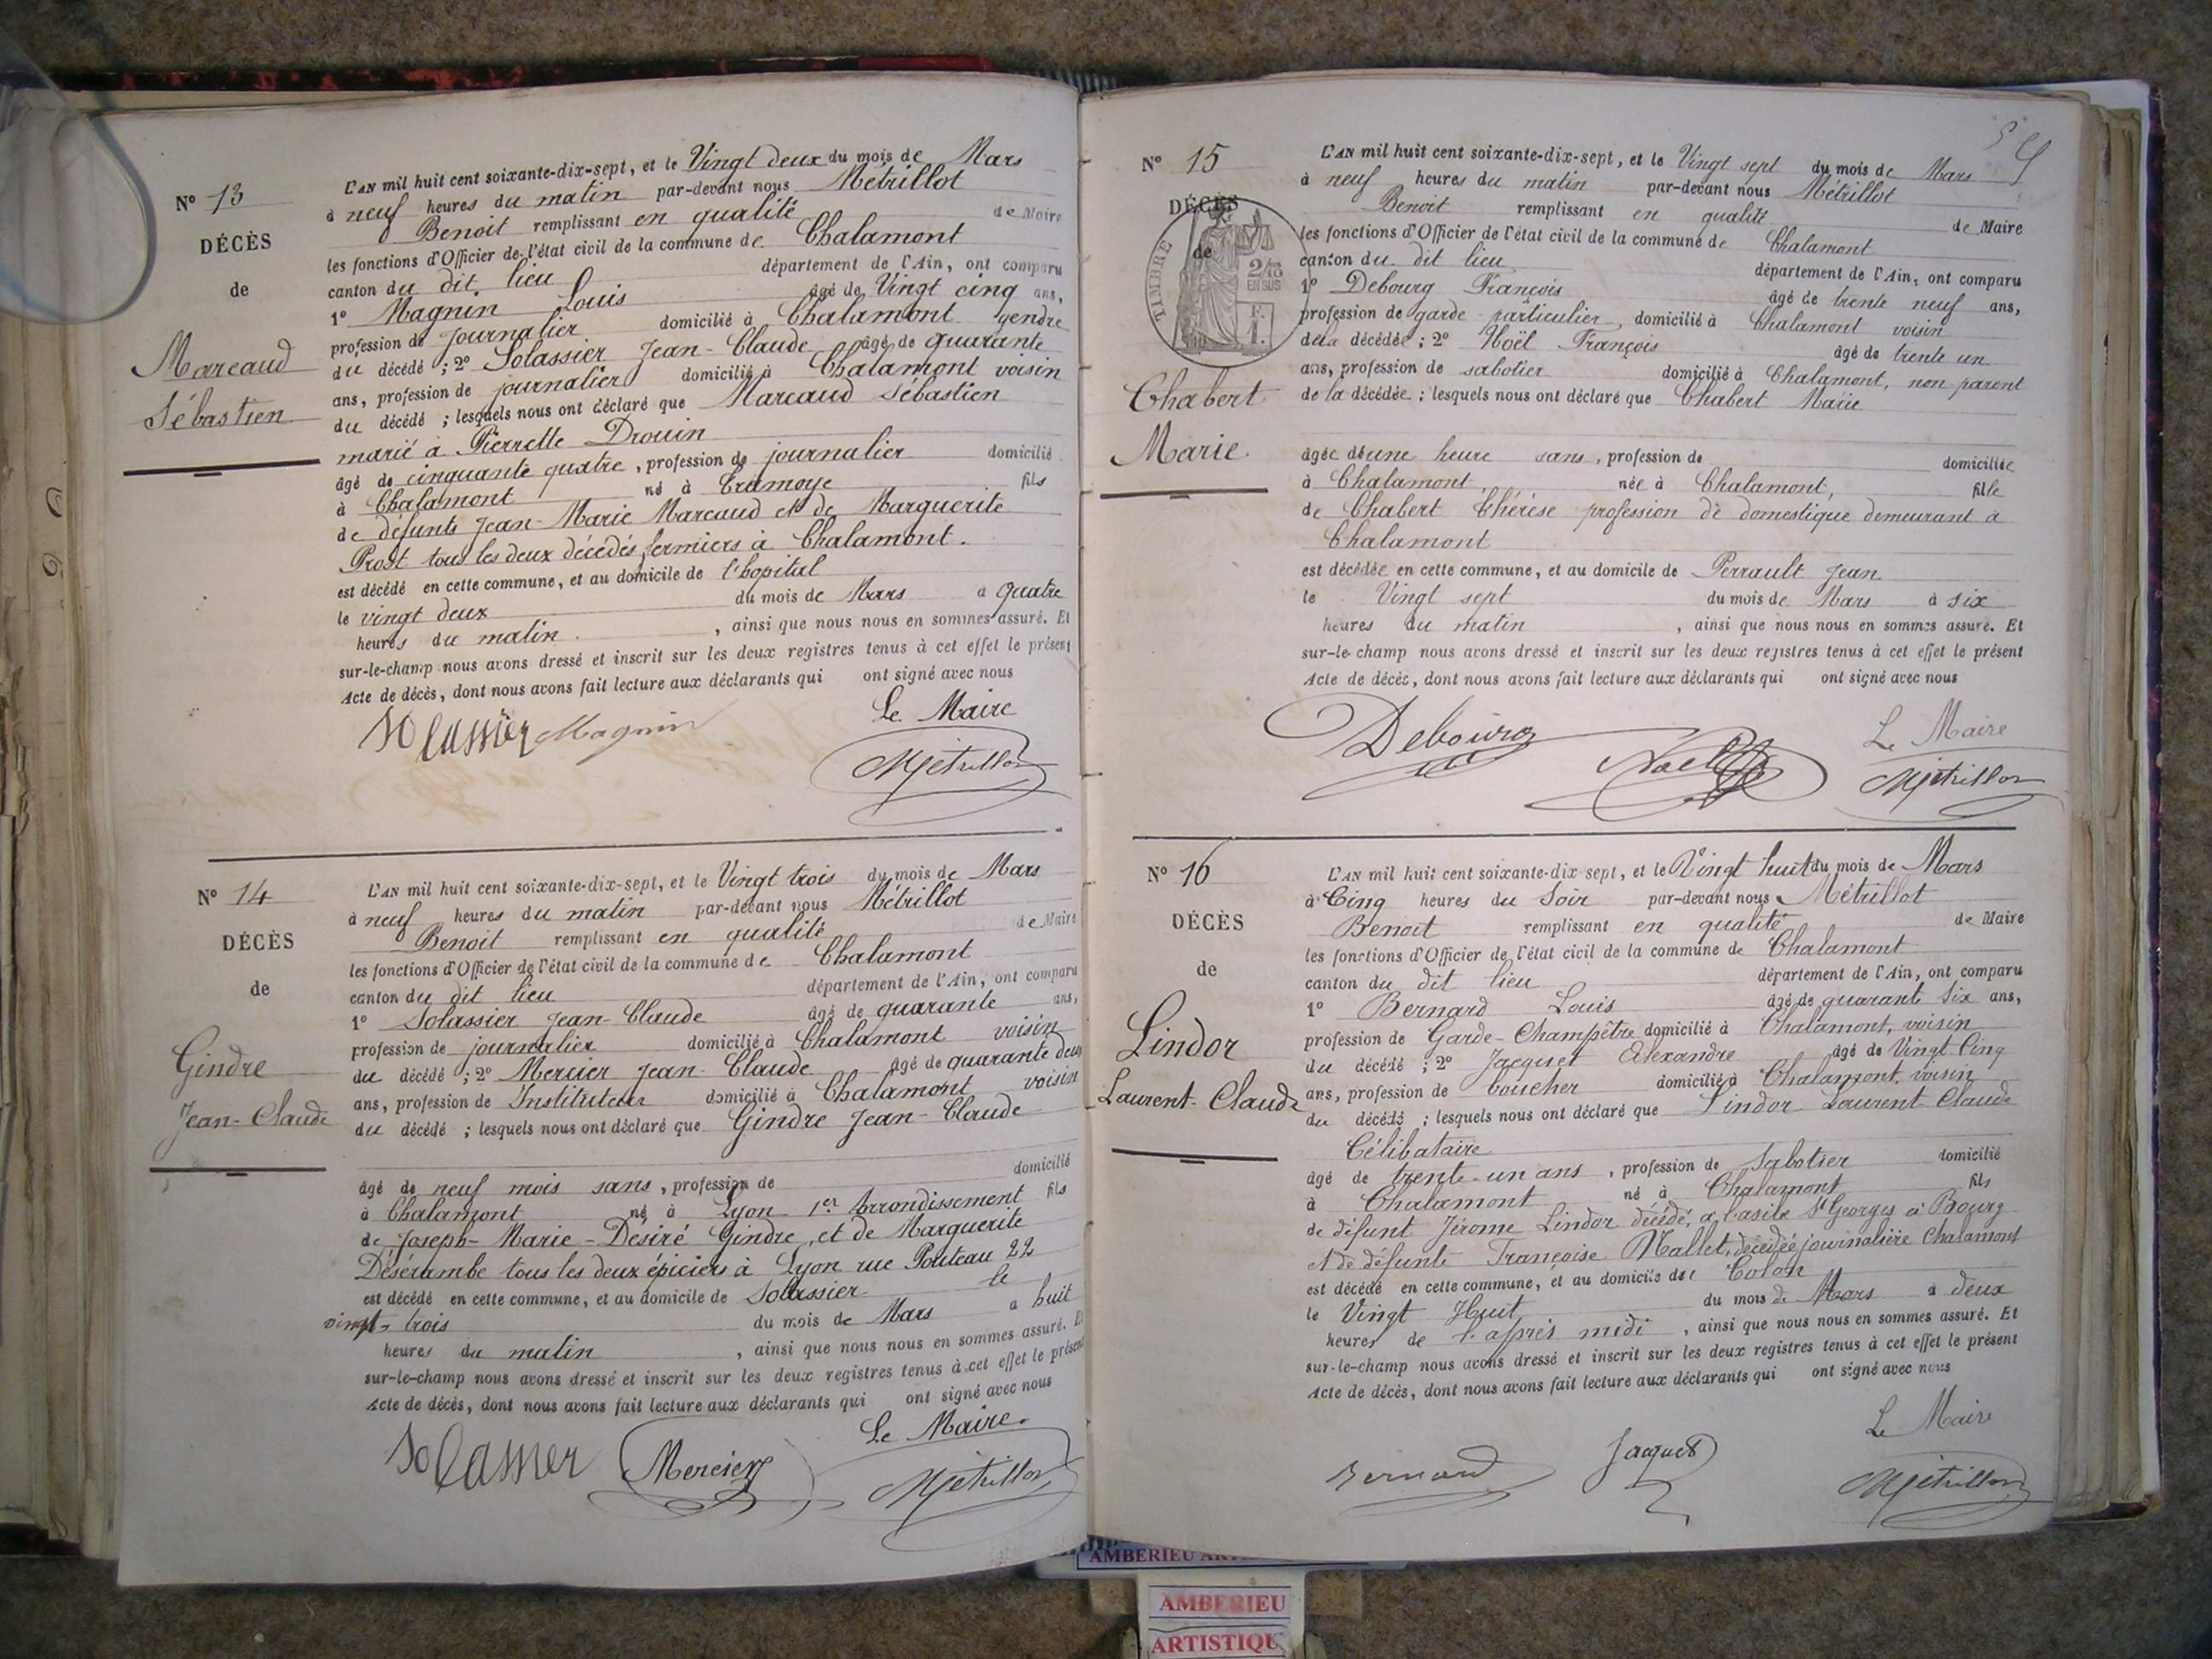 N° 13
DÉCÈS
de
Marcaud
Sébastien
L'AN mil huit cent soixante-dix-sept, et le Vingt deux du mois de Mars
à neuf heures du matin par-devant nous Métrillot
Benoit remplissant en qualité de Maire
les fonctions d'Officier de l'état civil de la commune de Chalamont
canton du dit lieu département de l'Ain, ont comparu
1° Magnin Louis âgé de Vingt cinq ans,
profession de journalier domicilié à Chalamont gendre
du décédé ; 2° Solassier Jean-Claude âgé de quarante
ans, profession de journalier domicilié à Chalamont voisin
du décédé ; lesquels nous ont déclaré que Marcaud Sébastien
marié à Pierrette Drouin
âgé de cinquante quatre, profession de journalier domicilié
à Chalamont né à Tramoye fils
de défunts Jean-Marie Marcaud et de Marguerite
Prost tous les deux décédés fermiers à Chalamont.
est décédé en cette commune, et au domicile de l'hopital
le vingt deux du mois de Mars à quatre
heures du matin, ainsi que nous nous en sommes assuré. Et
sur-le-champ nous avons dressé et inscrit sur les deux registres tenus à cet effet le présent
Acte de décès, dont nous avons fait lecture aux déclarants qui ont signé avec nous
Le Maire
Solassier Magnin Métrillot
N° 14
DÉCÈS
de
Gindre
Jean-Claude
L'AN mil huit cent soixante-dix-sept, et le Vingt trois du mois de Mars
à neuf heures du matin par-devant nous Métrillot
Benoit remplissant en qualité de Maire
les fonctions d'Officier de l'état civil de la commune de Chalamont
canton du dit lieu département de l'Ain, ont comparu
1° Solassier Jean-Claude âgé de quarante ans,
profession de journalier domicilié à Chalamont voisin
du décédé ; 2° Mercier Jean-Claude âgé de quarante deux
ans, profession de Instituteur domicilié à Chalamont voisin
du décédé ; lesquels nous ont déclaré que Gindre Jean-Claude
âgé de neuf mois sans, profession de domicilié
à Chalamont né à Lyon 1er Arrondissement fils
de Joseph-Marie-Désiré Gindre, et de Marguerite
Désérambe tous les deux épiciers à Lyon rue Pouteau 22
est décédé en cette commune, et au domicile de Solassier le
vingt-trois du mois de Mars à huit
heures du matin, ainsi que nous nous en sommes assuré. Et
sur-le-champ nous avons dressé et inscrit sur les deux registres tenus à cet effet le présent
Acte de décès, dont nous avons fait lecture aux déclarants qui ont signé avec nous
Le Maire.
Solassier Mercier Métrillot
N° 15
DÉCÈS
de
TIMBRE
2/10
EN SUS
Chabert
Marie
L'AN mil huit cent soixante-dix-sept, et le Vingt sept du mois de Mars
à neuf heures du matin par-devant nous Métrillot
Benoit remplissant en qualité de Maire
les fonctions d'Officier de l'état civil de la commune de Chalamont
canton du dit lieu département de l'Ain, ont comparu
1° Debourg François âgé de trente neuf ans,
profession de garde particulier, domicilié à Chalamont voisin
de la décédée ; 2° Noël François âgé de trente un
ans, profession de sabotier domicilié à Chalamont, non parent
de la décédée ; lesquels nous ont déclaré que Chabert Marie
âgée d'une heure sans, profession de domiciliée
à Chalamont née à Chalamont, fille
de Chabert Thérèse profession de domestique demeurant à
Chalamont
est décédée en cette commune, et au domicile de Perrault Jean
le Vingt sept du mois de Mars à six
heures du matin, ainsi que nous nous en sommes assuré. Et
sur-le-champ nous avons dressé et inscrit sur les deux registres tenus à cet effet le présent
Acte de décès, dont nous avons fait lecture aux déclarants qui ont signé avec nous
Le Maire
Debourg Noël Métrillot
N° 16
DÉCÈS
de
Lindor
Laurent-Claude
L'AN mil huit cent soixante-dix-sept, et le Vingt huit du mois de Mars
à Cinq heures du Soir par-devant nous Métrillot
Benoit remplissant en qualité de Maire
les fonctions d'Officier de l'état civil de la commune de Chalamont
canton du dit lieu département de l'Ain, ont comparu
1° Bernard Louis âgé de quarante Six ans,
profession de Garde-Champêtre domicilié à Chalamont, voisin
du décédé ; 2° Jacquet Alexandre âgé de Vingt-Cinq
ans, profession de boucher domicilié à Chalamont, voisin
du décédé ; lesquels nous ont déclaré que Lindor Laurent-Claude
Célibataire
âgé de trente-un ans, profession de Sabotier domicilié
à Chalamont né à Chalamont fils
de défunt Jérome Lindor décédé, à l'asile St Georges à Bourg
et de défunte Françoise Mallet, décédée journalière Chalamont
est décédé en cette commune, et au domicile de Colon
le Vingt Huit du mois de Mars à deux
heures de l'après midi, ainsi que nous nous en sommes assuré. Et
sur-le-champ nous avons dressé et inscrit sur les deux registres tenus à cet effet le présent
Acte de décès, dont nous avons fait lecture aux déclarants qui ont signé avec nous
Le Maire
Bernard Jacquet Métrillot
AMBERIEU
AMBERIEU
ARTISTIQU